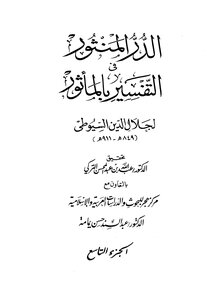 الدر المنثور
في
التفسير بالمأثور
لجلال الدين السيوطي
(٨٤٩هـ - ٩١١هـ)
تحقيق
الدكتور عبد الله بن عبد المحسن التركي
بالتعاون مع
مركز هجر للبحوث والدراسات العربية والإسلامية
الدكتور عبد السند حسن يمامة
الجزء التاسع